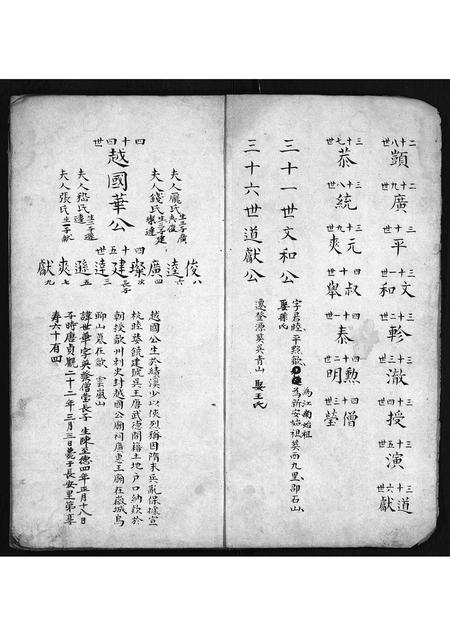 二十八世 顗
二十九世 廣
三十世 平
三十一世 文和
三十二世 軫
三十三世 澈
三十四世 授
三十五世 演
三十六世 道獻
三十七世 恭
三十八世 統
三十九世 元爽
四十世 叔舉
四十一世 泰
四十二世 勲明
四十三世 僧瑩
三十一世文和公
字君睦平黟歙為江南始祖
為新安始祖葬西九里即石山
娶葉氏
三十六世道獻公
遷登源葬吳青山 娶王氏
四十四世
越國華公
夫人龐氏生三子廣
夫人錢氏生三子建璨達
夫人嵇氏生二子遜
夫人張氏生一子獻
四十五世
建長子
璨次
達三
廣四
遜五
逵六
爽七
俊八
獻九
越國公生於績溪少以俠烈稱因隋末兵亂保據宣
杭睦婺饒建號吳王唐武德間籍土地戶口納欵於
朝授歙州刺史封越國公廟祠廣惠王廟在徽城烏
聊山墓在歙 雲嵐山
諱世華字英發僧瑩長子 生陳至德四年正月十八日
子時唐貞觀二十二年三月三日薨于長安里第享
壽六十有四